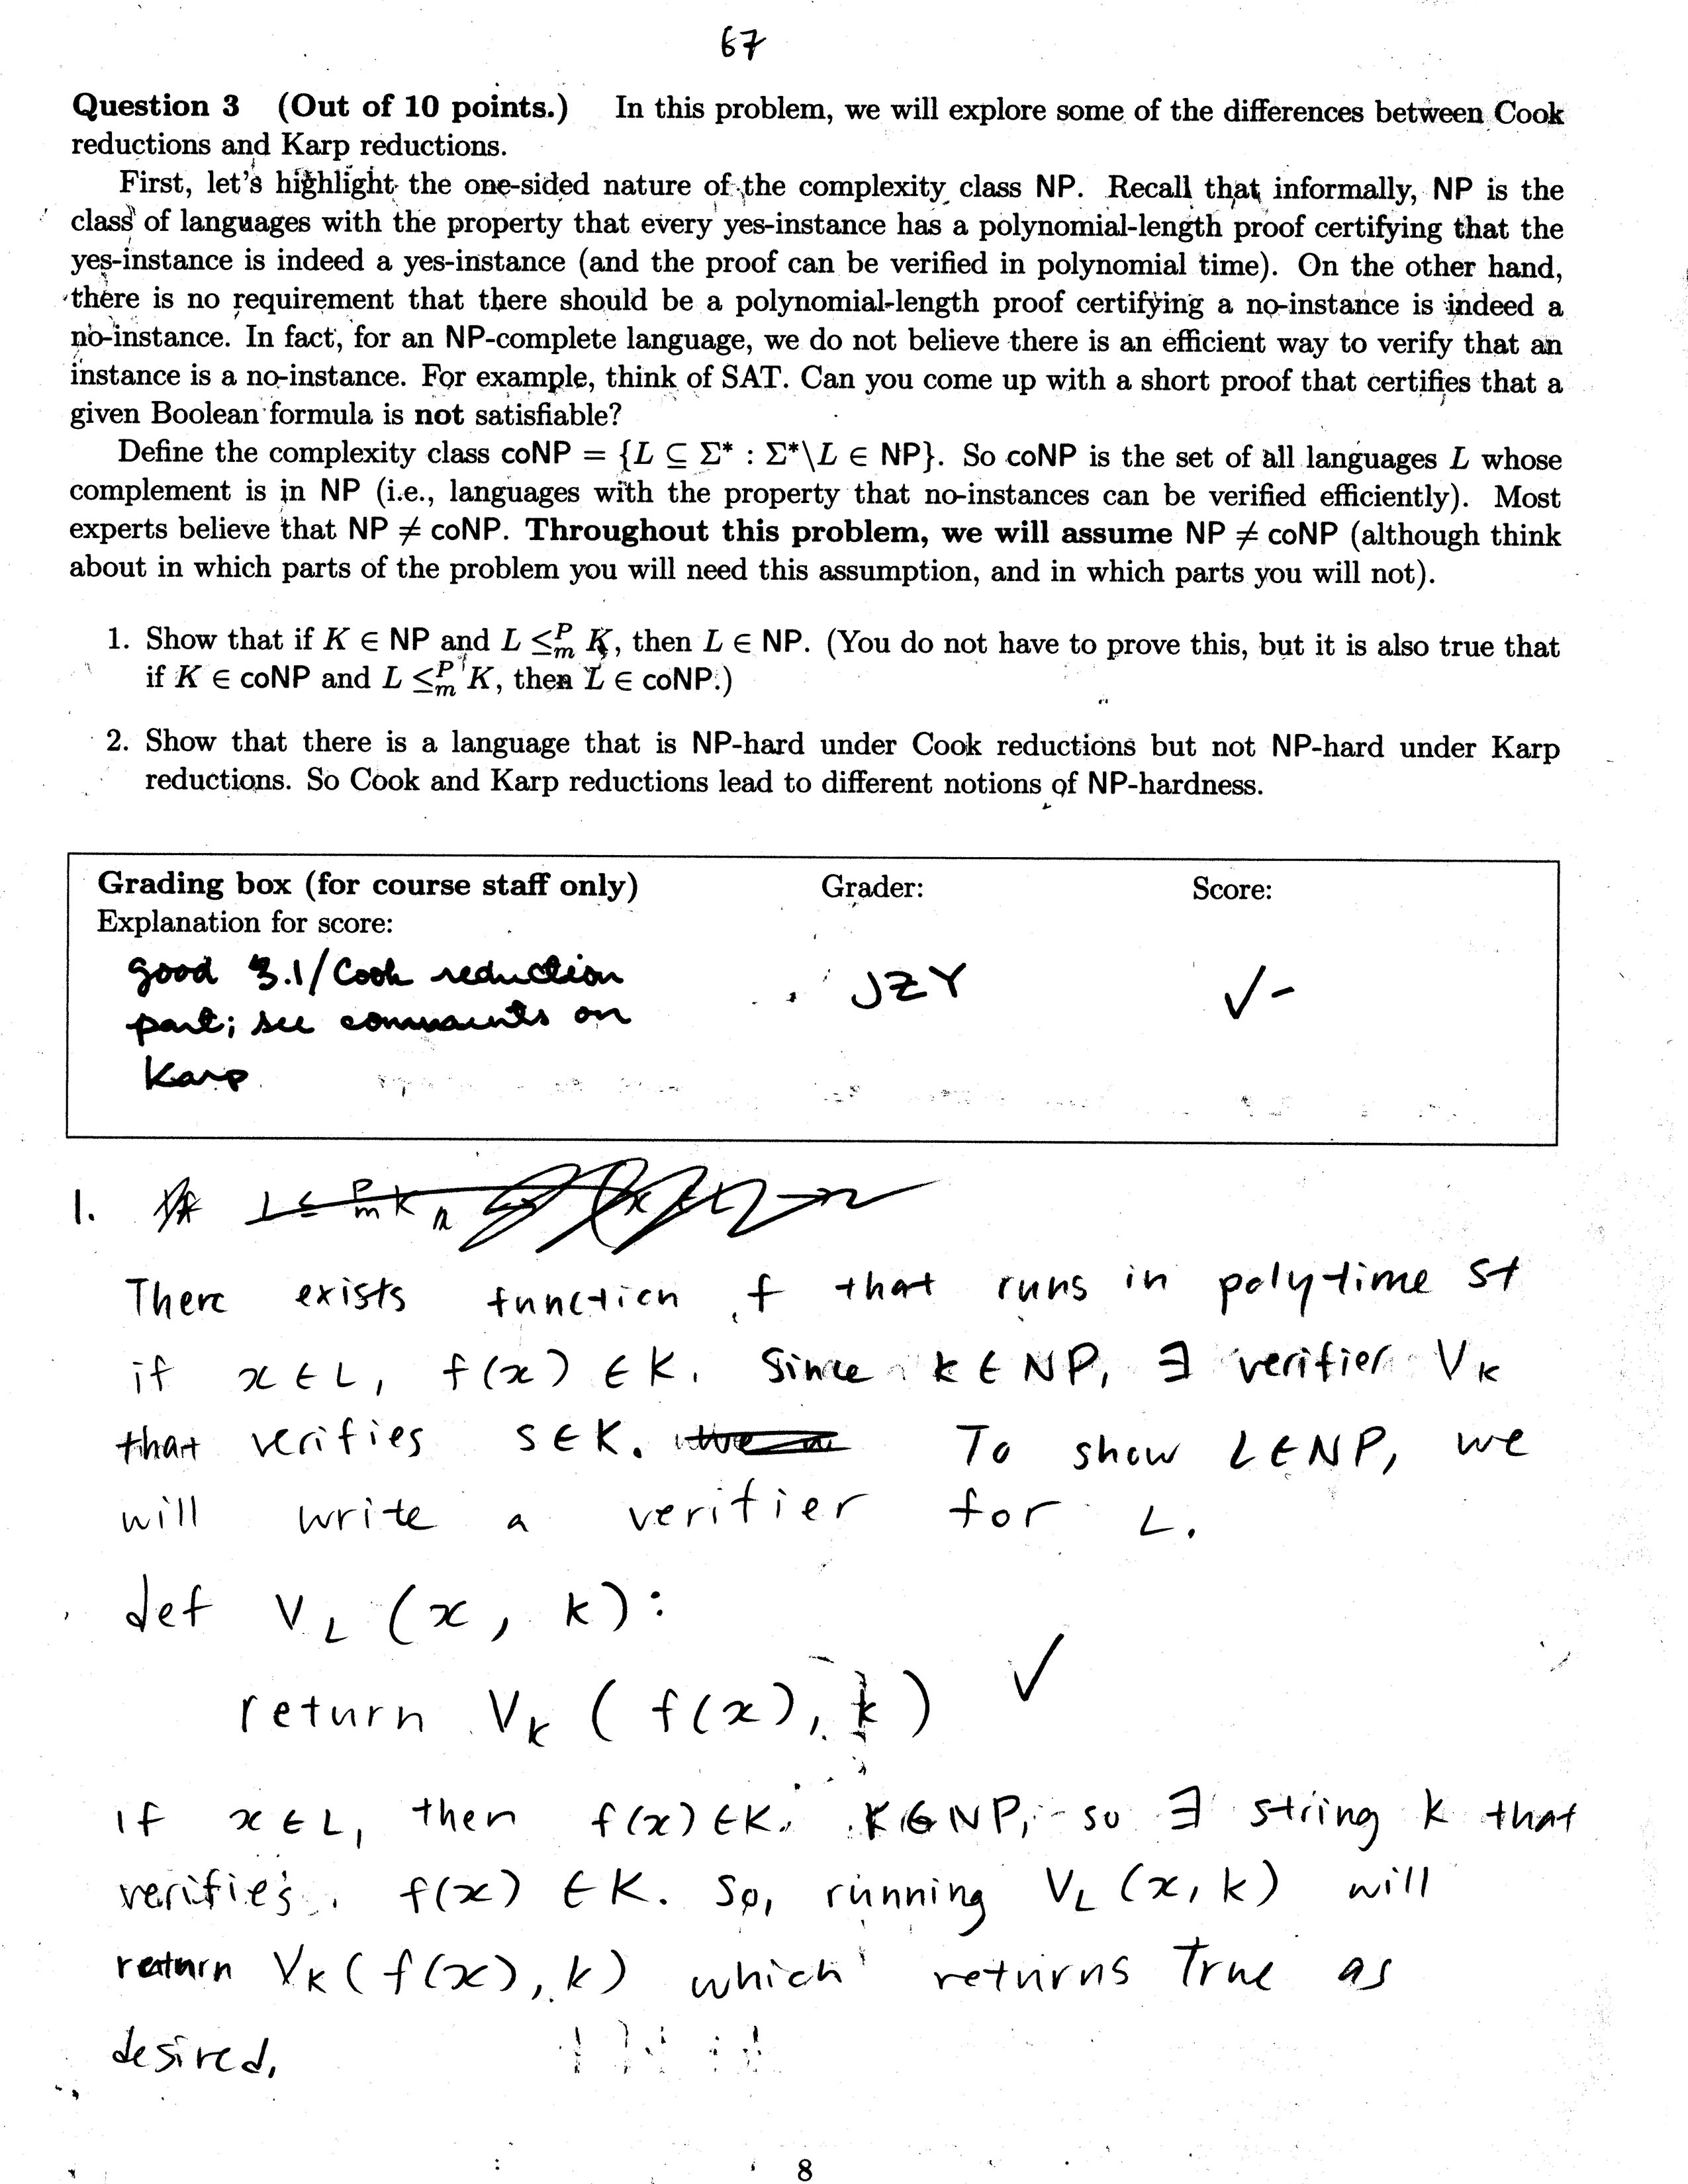 67
Question 3 (Out of 10 points.) In this problem, we will explore some of the differences between Cook
reductions and Karp reductions.
First, let's highlight the one-sided nature of the complexity class NP. Recall that informally, NP is the
class of languages with the property that every yes-instance has a polynomial-length proof certifying that the
yes-instance is indeed a yes-instance (and the proof can be verified in polynomial time). On the other hand,
there is no requirement that there should be a polynomial-length proof certifying a no-instance is indeed a
no-instance. In fact, for an NP-complete language, we do not believe there is an efficient way to verify that an
instance is a no-instance. For example, think of SAT. Can you come up with a short proof that certifies that a
given Boolean formula is not satisfiable?
Define the complexity class coNP = {L ⊆ Σ* : Σ*\L ∈ NP}. So coNP is the set of all languages L whose
complement is in NP (i.e., languages with the property that no-instances can be verified efficiently). Most
experts believe that NP ≠ coNP. Throughout this problem, we will assume NP ≠ coNP (although think
about in which parts of the problem you will need this assumption, and in which parts you will not).
1. Show that if K ∈ NP and L ≤ᴾₘ K, then L ∈ NP. (You do not have to prove this, but it is also true that
if K ∈ coNP and L ≤ᴾₘ K, then L ∈ coNP.)
2. Show that there is a language that is NP-hard under Cook reductions but not NP-hard under Karp
reductions. So Cook and Karp reductions lead to different notions of NP-hardness.
Grading box (for course staff only) Grader: Score:
Explanation for score:
good 3.1/Cook reduction
part; see comments on
Karp
JZY
✓-
1.
There exists function f that runs in polytime st
if x ∈ L, f(x) ∈ K. Since k ∈ NP, ∃ verifier V_K
that verifies s ∈ K. To show L ∈ NP, we
will write a verifier for L.
def V_L (x, k):
return V_K ( f(x), k ) ✓
if x ∈ L, then f(x) ∈ K. K ∈ NP, so ∃ string k that
verifies f(x) ∈ K. So, running V_L (x, k) will
return V_K ( f(x), k) which returns True as
desired.
8